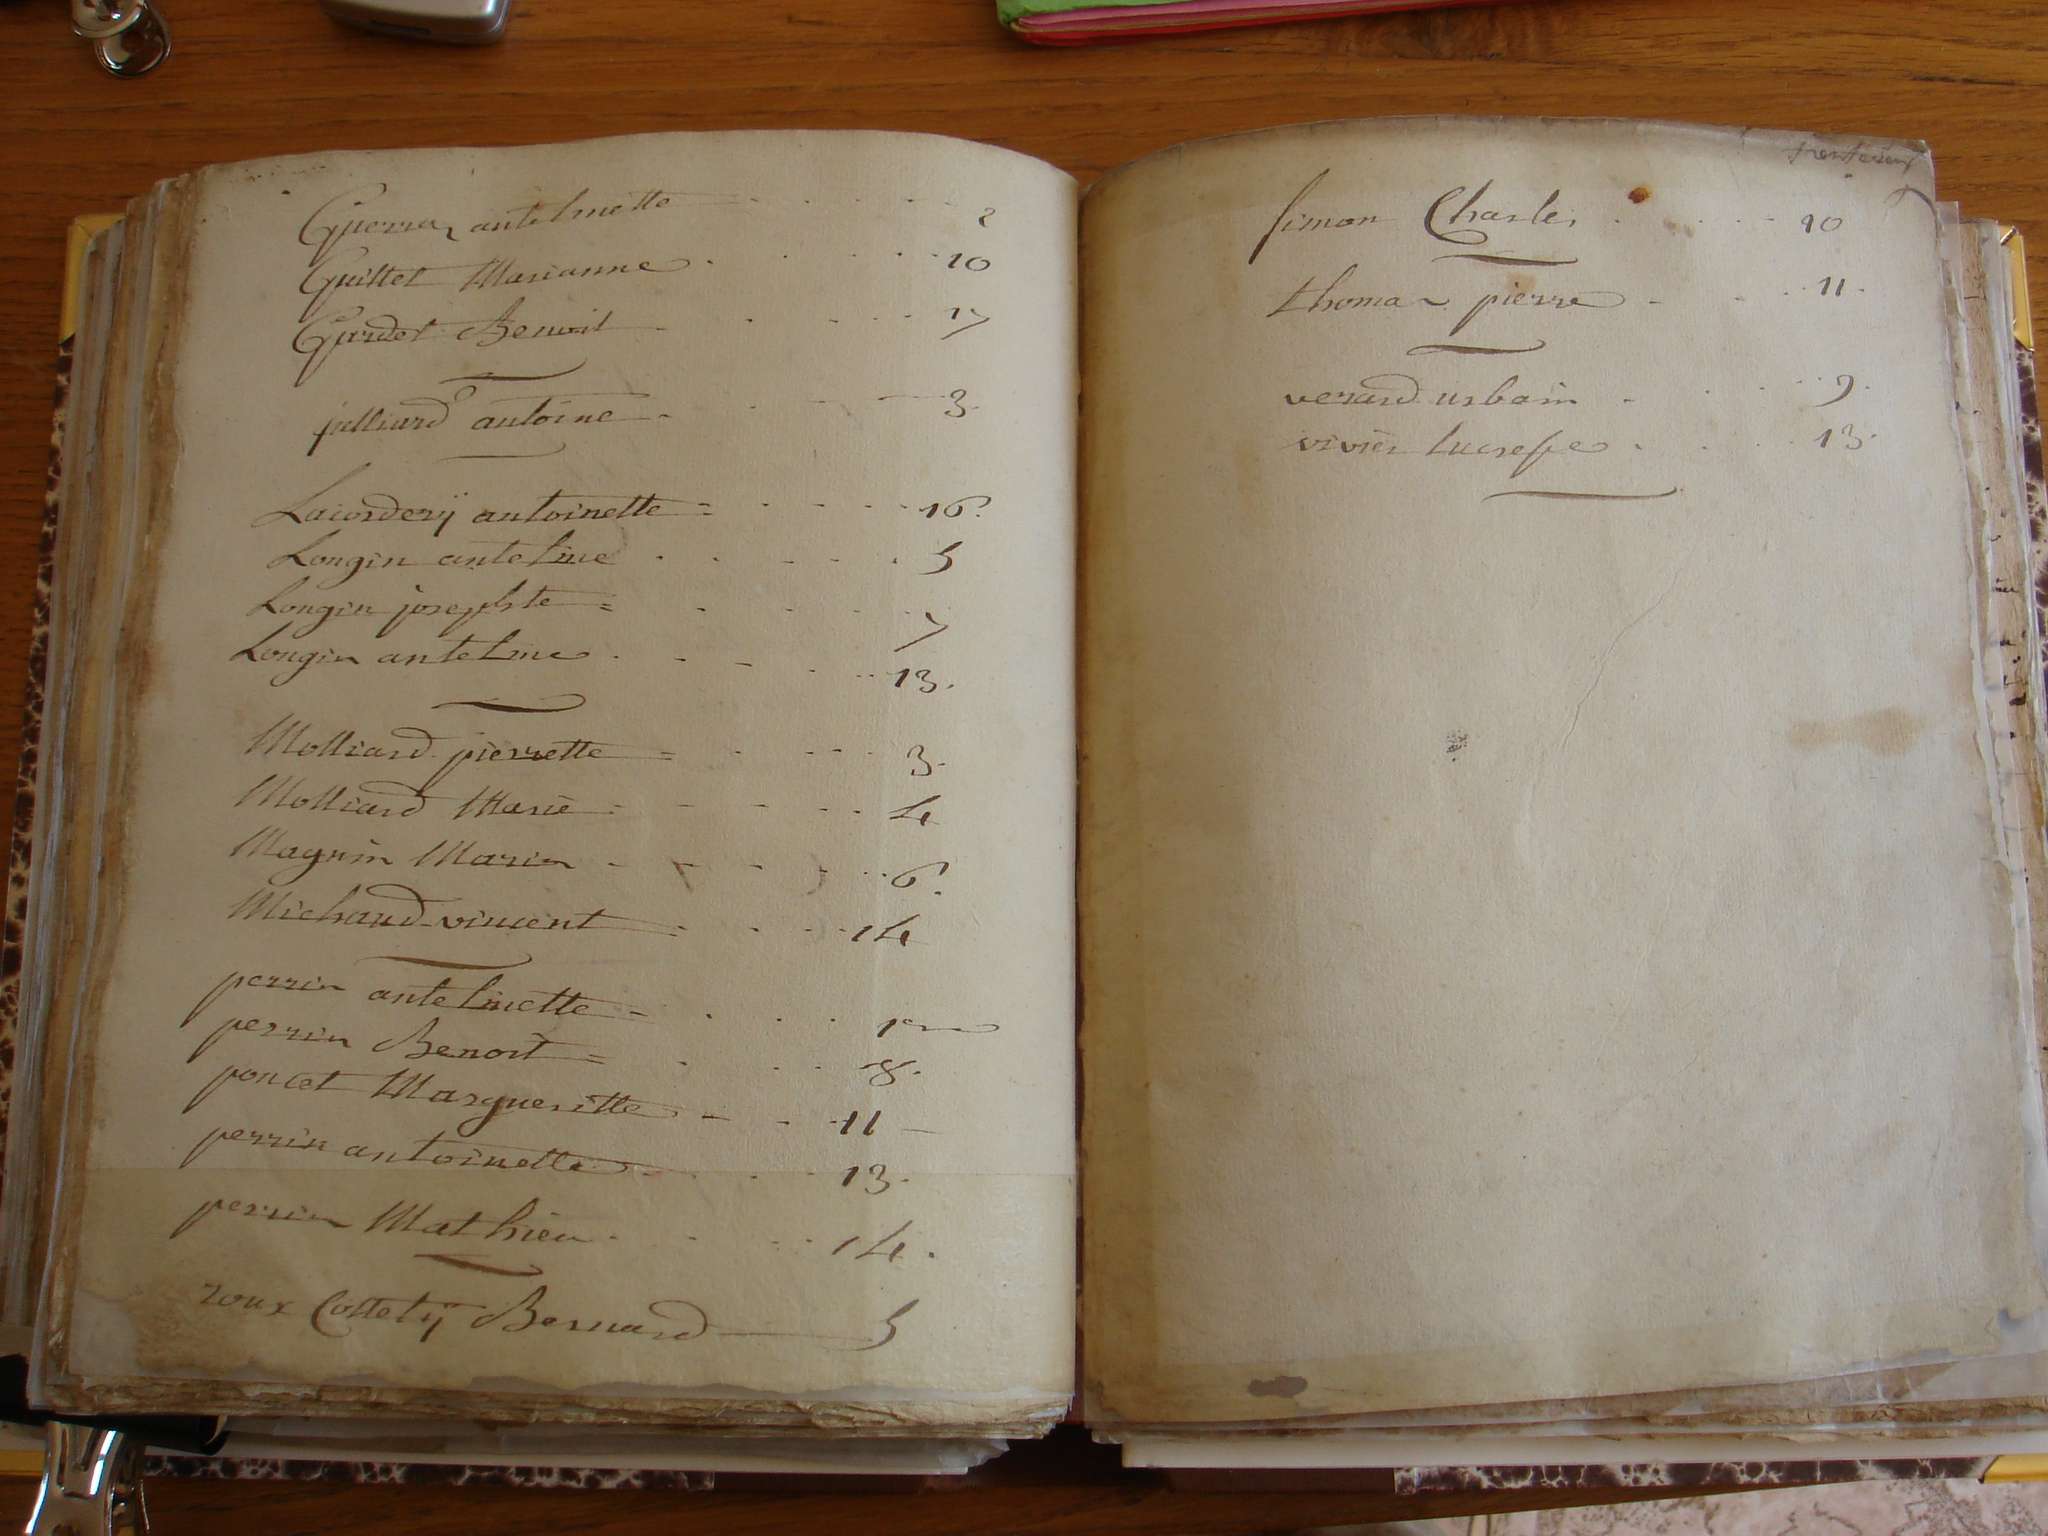 Guerrer antelmette 2
Guillet Marianne 10
Gurdet Benoit 17
julliard antoine 3.
Laiorderÿ antoinette = 16.
Longin antelme 5
Longin josephte = 7
Longin antelme 13.
Molliard pierrette = 3.
Molliard Marie 4
Magnin Marie 6.
Michaud vincent 14
perrin antelmette 1er
perrin Benoit = 8.
poncet Margueritte 11
perrin antoinette 13.
perrin Mathieu 14.
roux Colletÿ Bernard 5
simon Charles 10
thomas pierre 11.
verard urbain 9.
vivier lucresse 13.